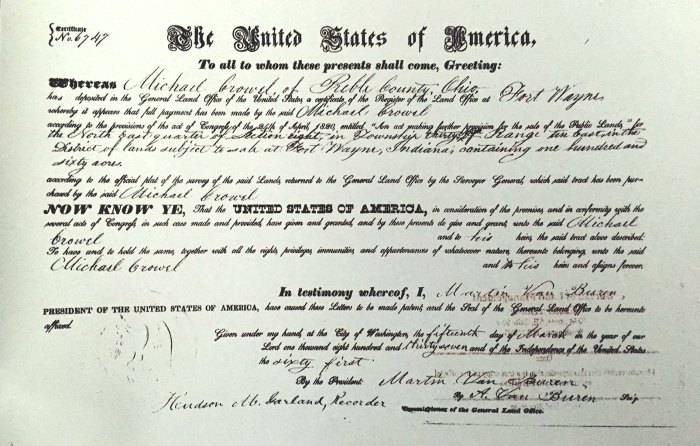 Certificate
No. 6747
The United States of America,
To all to whom these presents shall come, Greeting:
Whereas Michael Crowel, of Preble County, Ohio,
has deposited in the General Land Office of the United States, a certificate of the Register of the Land Office at Fort Wayne
whereby it appears that full payment has been made by the said Michael Crowel
according to the provisions of the act of Congress of the 24th of April, 1820, entitled "An act making further provision for the sale of the Public Lands," for
the North East quarter of Section eight, in Township thirty, of Range ten East, in the
District of lands subject to sale at Fort Wayne, Indiana, containing one hundred and
sixty acres.
according to the official plat of the survey of the said Lands, returned to the General Land Office by the Surveyor General, which said tract has been pur-
chased by the said Michael Crowel
NOW KNOW YE, That the UNITED STATES OF AMERICA, in consideration of the premises, and in conformity with the
several acts of Congress, in such case made and provided, have given and granted, and by these presents do give and grant, unto the said Michael
Crowel and to his heirs, the said tract above described:
To have and to hold the same, together with all the rights, privileges, immunities, and appurtenances of whatsoever nature, thereunto belonging, unto the said
Michael Crowel and to his heirs and assigns forever.
In testimony whereof, I, Martin Van Buren,
PRESIDENT OF THE UNITED STATES OF AMERICA, have caused these Letters to be made patent, and the Seal of the General Land Office to be hereunto
affixed.
Given under my hand, at the City of Washington, the fifteenth day of March in the year of our
Lord one thousand eight hundred and thirty seven and of the Independence of the United States
the sixty first.
By the President: Martin Van Buren
By A. Van Buren Sec'y.
Hudson M. Garland, Recorder
Commissioner of the General Land Office.